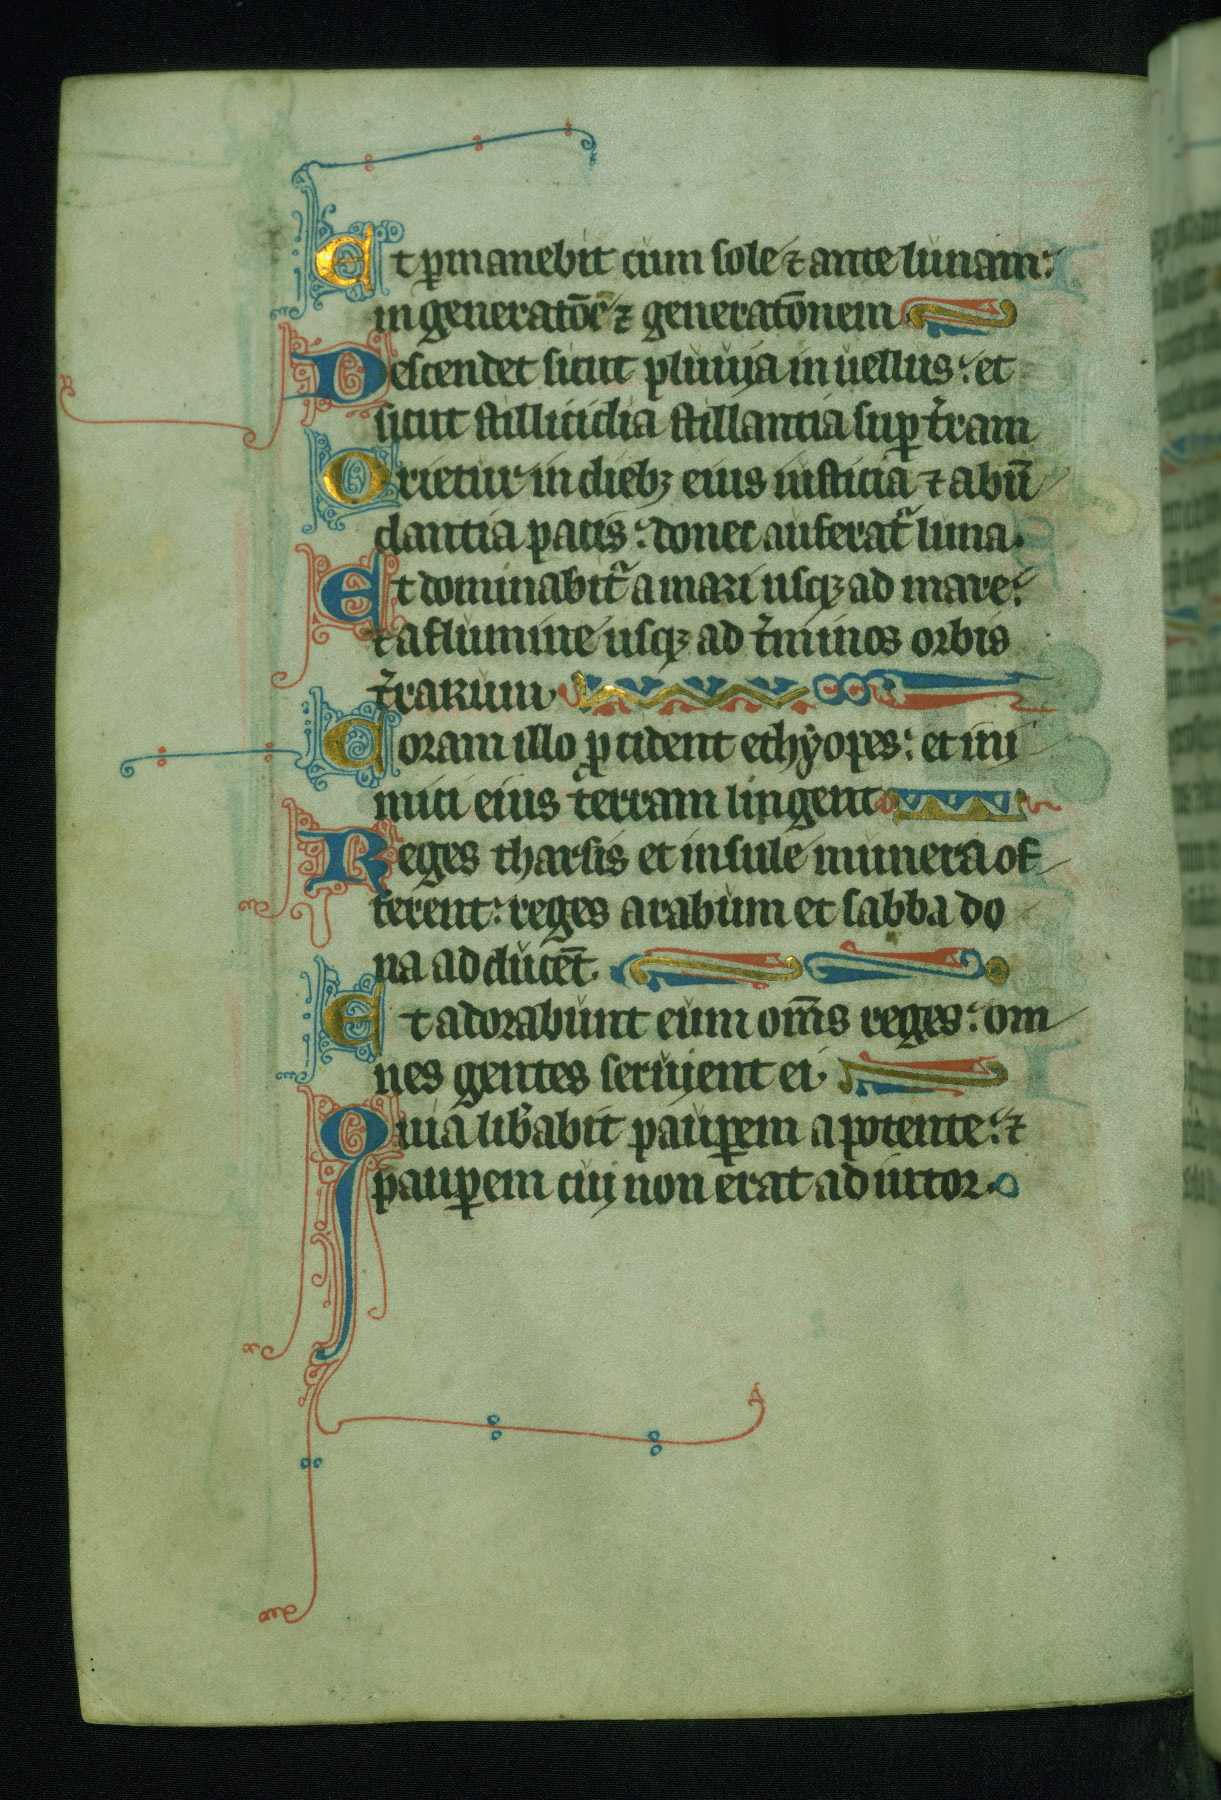 Et ꝑmanebit cum sole ⁊ ante lunam:
in generatōe ⁊ generatōnem
Descendet sicut pluuia in uellus: et
sicut stillicidia stillantia suꝑ t̄ram
Orietur in dieb; eius iusticia ⁊ abū
dantia pacis: donec auferat᷑ luna.
Et dominabit᷑ a mari usq; ad mare:
et a flumine usq; ad t̄minos orbis
t̄rarum
Coram illo ꝓcident ethyopes: et ini
mici eius terram lingent
Reges tharsis et insule munera of
ferent: reges arabum et sabba do
na adducēt.
Et adorabunt eum om̄s reges: om
nes gentes seruient ei.
Quia lib̄abit pauꝑem a potente: ⁊
pauꝑem cui non erat adiutor.